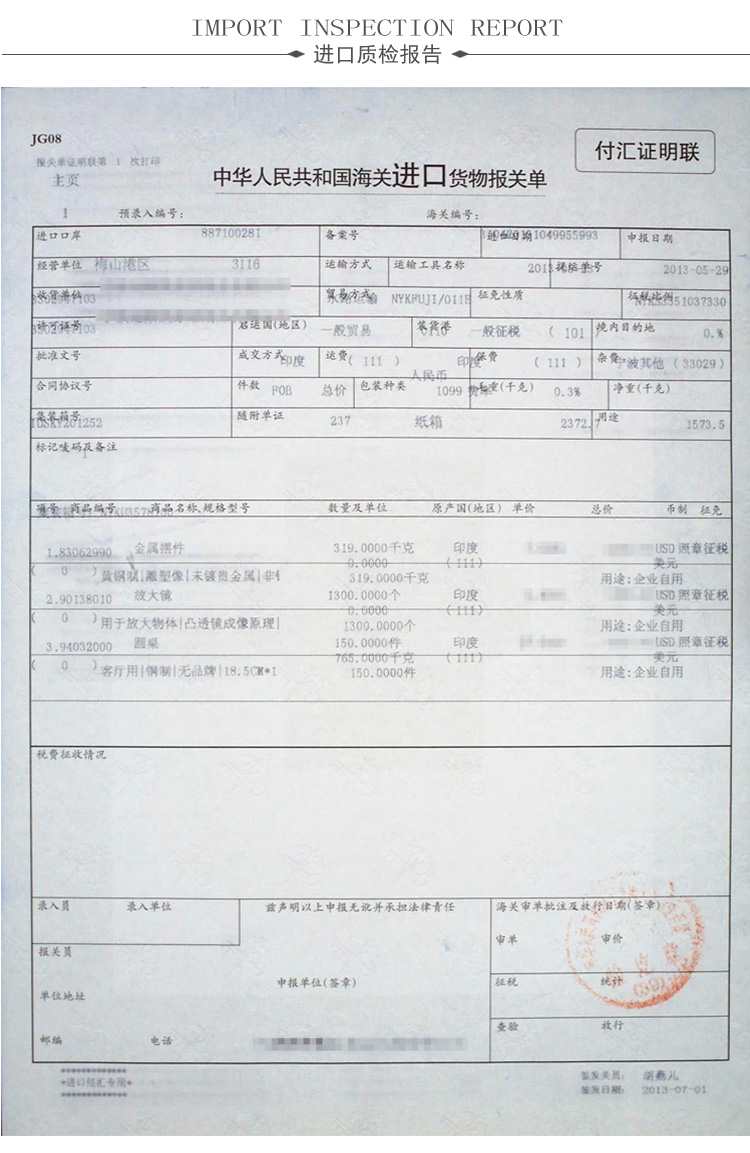 IMPORT INSPECTION REPORT
进口质检报告
JG08
报关单证明联第 1 次打印
付汇证明联
主页
中华人民共和国海关进口货物报关单
1 预录入编号: 海关编号:
进口口岸 887100281 备案号 进口日期 申报日期
经营单位 梅山港区 3116 运输方式 运输工具名称 提运单号 2013-05-29
收货单位 贸易方式 水路运输 NYKFUJI/011E 征免性质 征税比例
3302947103
许可证号 启运国(地区) 一般贸易 0110 装货港 一般征税 ( 101 ) 境内目的地 0.%
批准文号 成交方式 印度 运费 ( 111 ) 印度 保费 ( 111 ) 杂费 宁波其他 (33029)
人民币
合同协议号 件数 FOB 总价 包装种类 1099 毛重(千克) 0.3% 净重(千克)
集装箱号 随附单证 237 纸箱 2372.7 用途 1573.5
IDSKY201252
标记唛码及备注
项号 商品编号 商品名称、规格型号 数量及单位 原产国(地区) 单价 总价 币制 征免
1.83062990 金属摆件 319.0000千克 印度 USD 照章征税
0.0000 (111) 美元
( 0 ) 黄铜制|雕塑像|末镀贵金属|非 319.0000千克 用途:企业自用
2.90138010 放大镜 1300.0000个 印度 USD 照章征税
0.0000 (111) 美元
( 0 ) 用于放大物体|凸透镜成像原理| 1300.0000个 用途:企业自用
3.94032000 圆桌 150.0000件 印度 USD 照章征税
765.0000千克 (111) 美元
( 0 ) 客厅用|铜制|无品牌|18.5CM*1 150.0000件 用途:企业自用
税费征收情况
录入员 录入单位 兹声明以上申报无讹并承担法律责任 海关审单批注及放行日期(签章)
审单 审价
报关员
申报单位(签章) 征税 统计
单位地址
查验 放行
邮编 电话
*进口结汇专用*
签发关员: 胡燕儿
签发日期: 2013-07-01